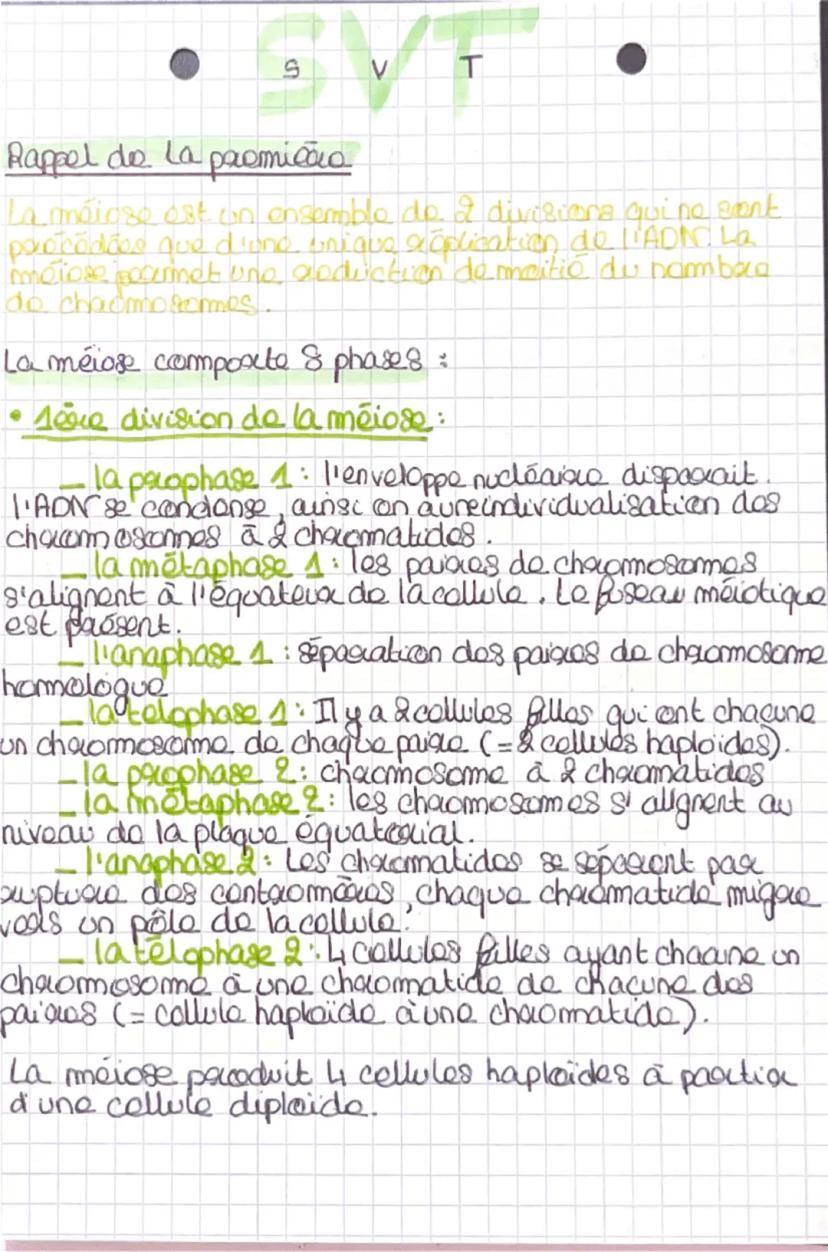 SVT
S V T
Rappel de la première
La méiose est un ensemble de 2 divisions qui ne sont
précédées que d'une unique réplication de l'ADN. La
méiose permet une réduction de moitié du nombre
de chromosomes.
La méiose comporte 8 phases :
• 1ère division de la méiose :
_ la prophase 1 : l'enveloppe nucléaire disparait.
l'ADN se condense, ainsi on a une individualisation des
chromosomes à 2 chromatides.
_ la métaphase 1 : les paires de chromosomes
s'alignent à l'équateur de la cellule. Le fuseau méiotique
est présent.
_ l'anaphase 1 : séparation des paires de chromosome
homologue
_ la telophase 1 : Il y a 2 cellules filles qui ont chacune
un chromosome de chaque paire (= 2 cellules haploïdes).
_ la prophase 2 : chromosome à 2 chromatides
_ la métaphase 2 : les chromosomes s'alignent au
niveau de la plaque équatorial.
_ l'anaphase 2 : Les chromatides se séparent par
rupture des centromères, chaque chromatide migre
vers un pôle de la cellule.
_ la télophase 2 : 4 cellules filles ayant chacune un
chromosome à une chromatide de chacune des
paires (= cellule haploïde à une chromatide).
La méiose produit 4 cellules haploïdes à partir
d'une cellule diploide.